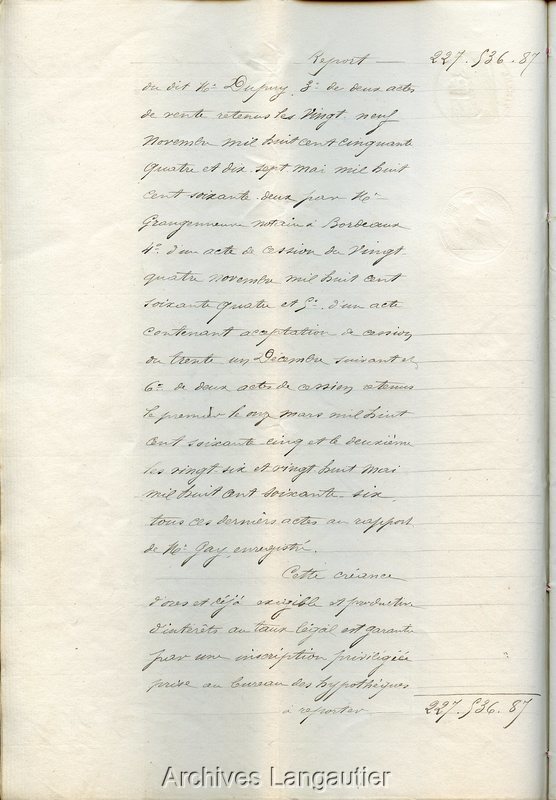 Report 227.536.87
du dit Me Dupuy, 3o de deux actes
de vente retenus les vingt neuf
Novembre mil huit cent cinquante
quatre et dix sept mai mil huit
cent soixante deux par Me
Grangeneuve notaire à Bordeaux
4o d'un acte de cession du vingt
quatre novembre mil huit cent
soixante quatre et 5o d'un acte
contenant acceptation de cession
du trente un Décembre suivant et
6o de deux actes de cession retenus
le premier le onze mars mil huit
cent soixante cinq et le deuxième
les vingt six et vingt huit mai
mil huit cent soixante six,
tous ces derniers actes au rapport
de Me Gay, enregistré.
Cette créance
d'ores et déjà exigible et productive
d'intérêts au taux légal est garantie
par une inscription privilégiée
prise au bureau des hypothèques
à reporter 227.536.87
Archives Langautier